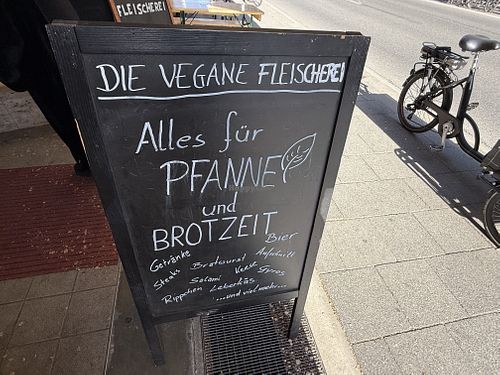 FLEISCHEREI
DIE VEGANE FLEISCHEREI
Alles für
PFANNE
und
BROTZEIT
Getränke Bier
Steaks Bratwurst Aufschnitt
Salami Veese Gyros
Rippchen Leberkäs
...und viel mehr...